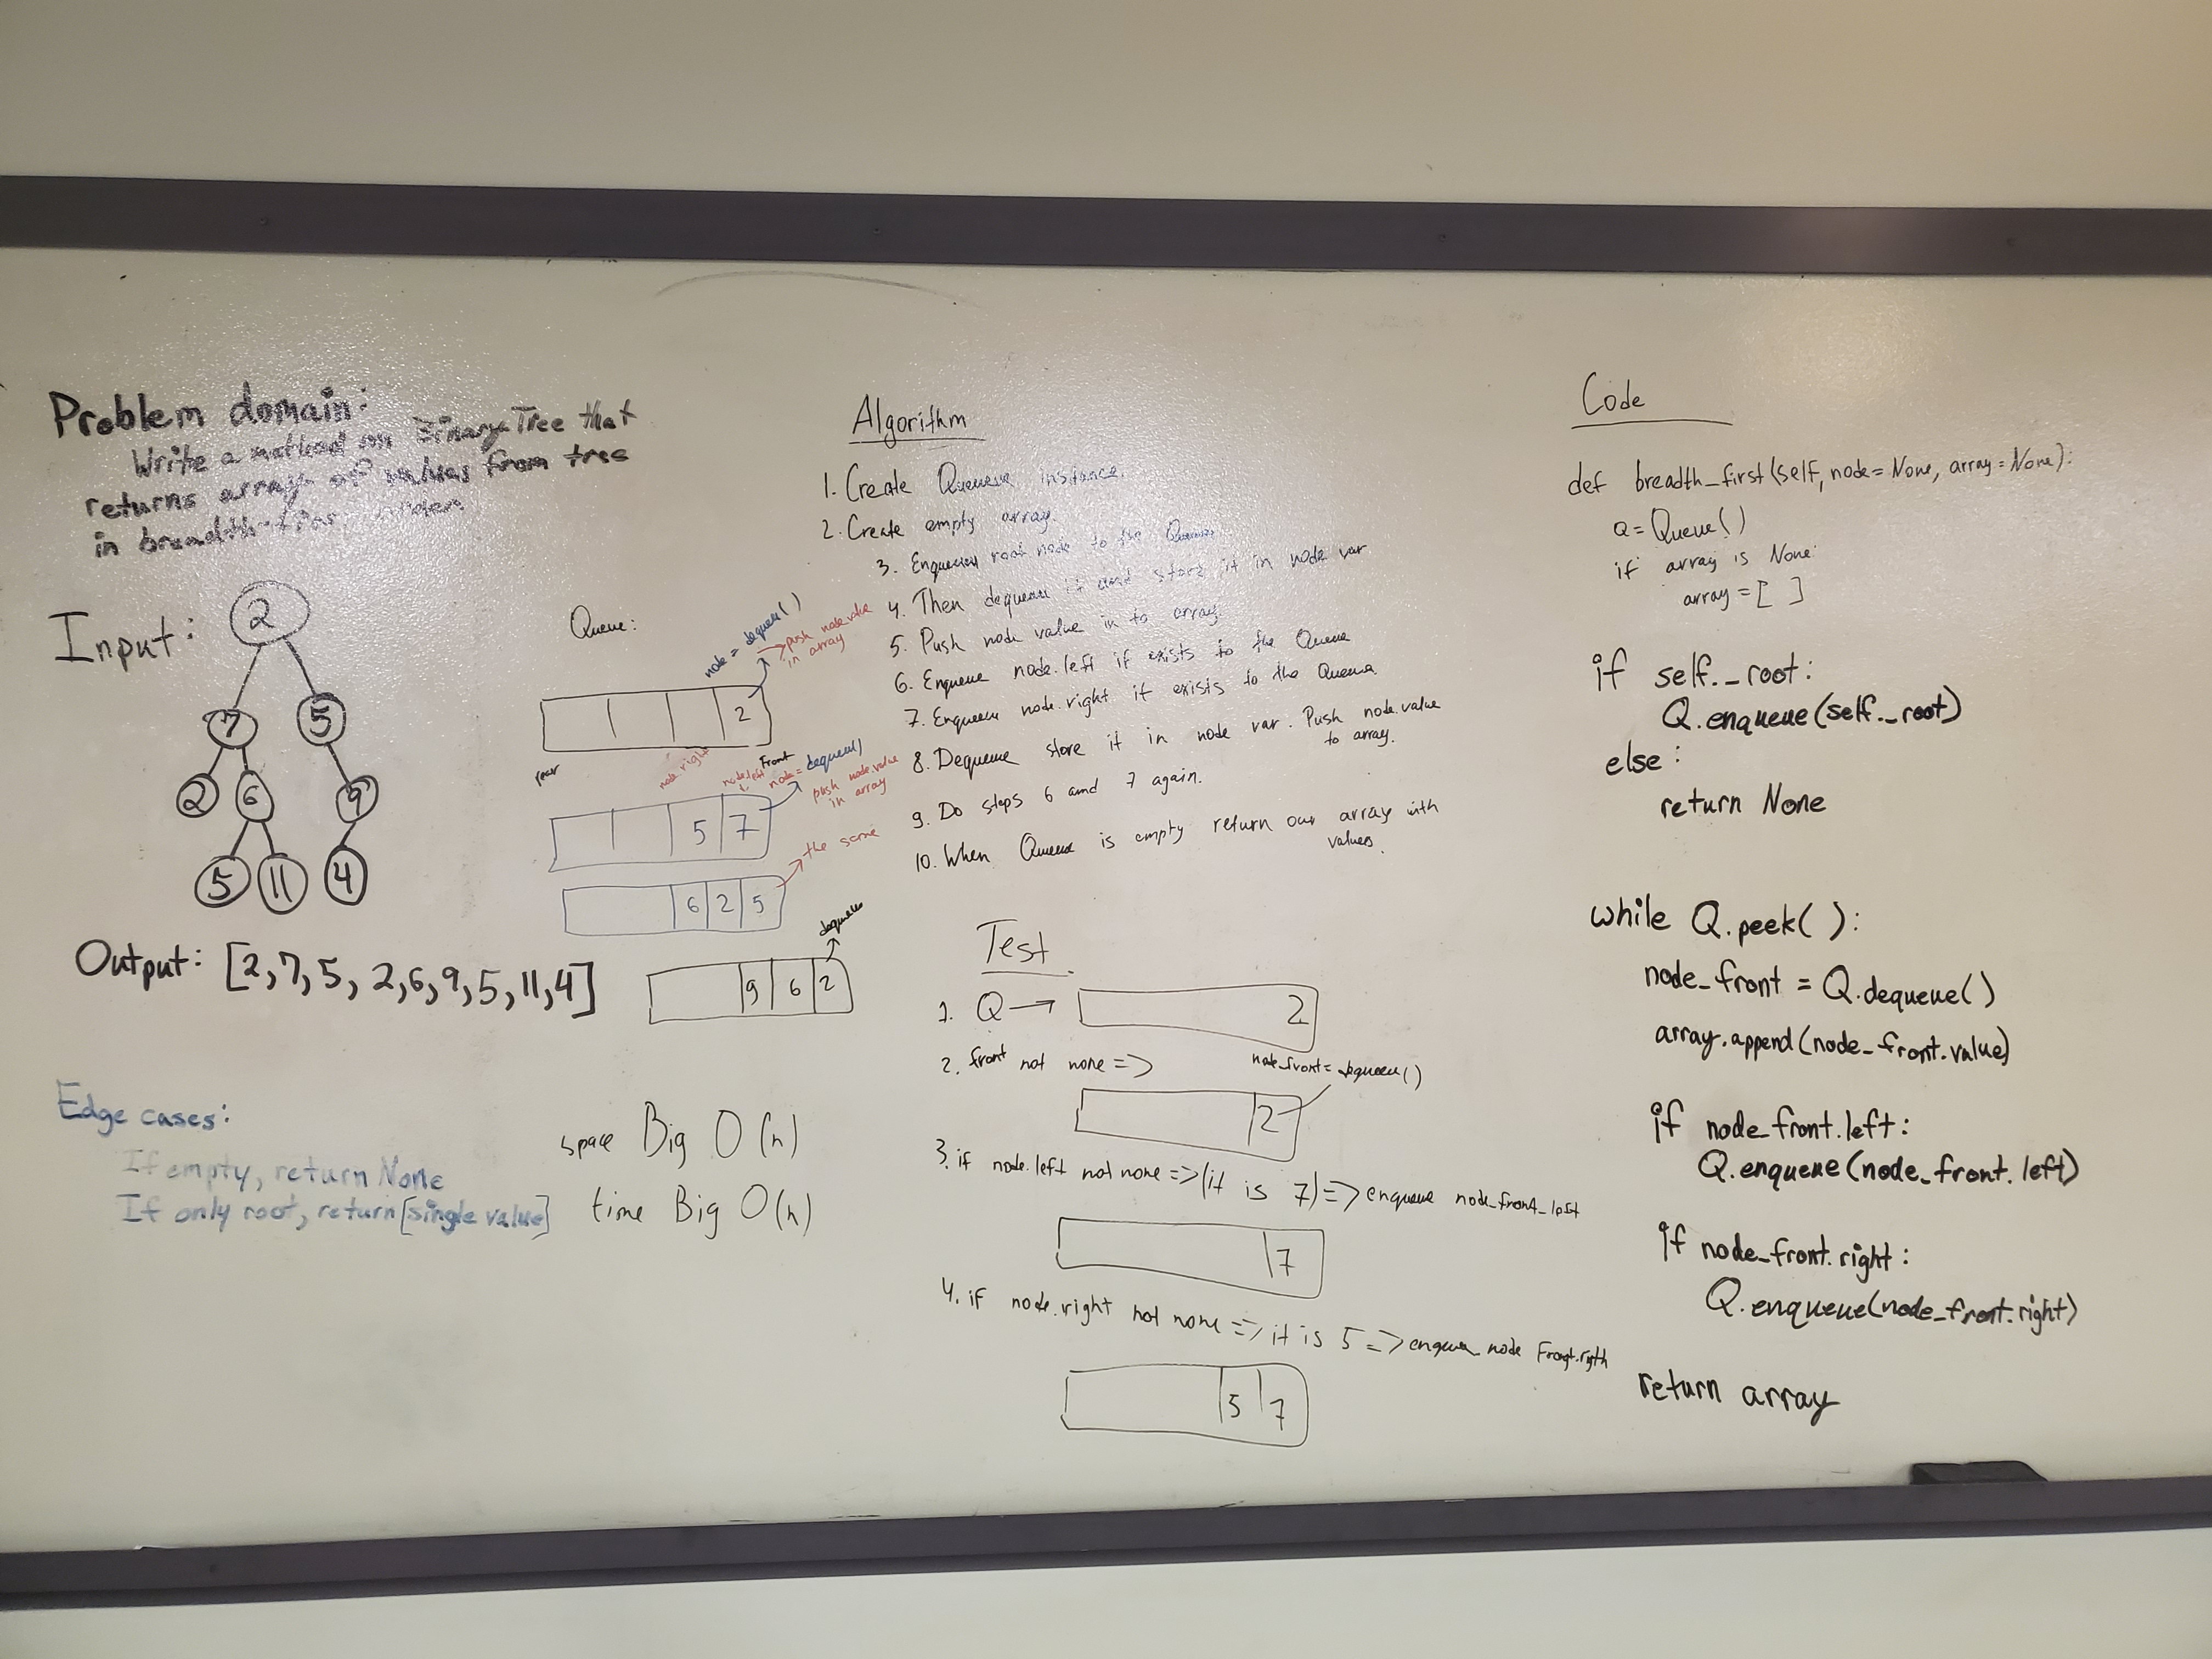 Problem domain:
Write a method on BinaryTree that
returns array of values from tree
in breadth-first manner.
Input:
2
7 5
2 6 9
5 11 4
Output: [2,7,5,2,6,9,5,11,4]
Edge cases:
If empty, return None
If only root, return [single value]
space Big O(n)
time Big O(n)
Queue:
2
node = dequeue()
push node.value
in array
rear
node.right
5 7
node.left
Front
node = dequeue()
push node.value
in array
6 2 5
the same
9 6 2
dequeue
Algorithm
1. Create Queue instance.
2. Create empty array.
3. Enqueue root node to the Queue
4. Then dequeue it and store it in node var
5. Push node value in to array
6. Enqueue node.left if exists to the Queue
7. Enqueue node.right if exists to the Queue
8. Dequeue, store it in node var. Push node.value
to array.
9. Do steps 6 and 7 again.
10. When Queue is empty return our array with
values.
Test
1. Q →
2
2. front not none =>
node_front = dequeue()
2
3. if node.left not none => (it is 7) => enqueue node_front_left
7
4. if node.right not none => it is 5 => enqueue node front.rigth
5 7
Code
def breadth_first(self, node=None, array=None):
Q = Queue()
if array is None:
array = [ ]
if self._root:
Q.enqueue(self._root)
else:
return None
while Q.peek():
node_front = Q.dequeue()
array.append(node_front.value)
if node_front.left:
Q.enqueue(node_front.left)
if node_front.right:
Q.enqueue(node_front.right)
return array